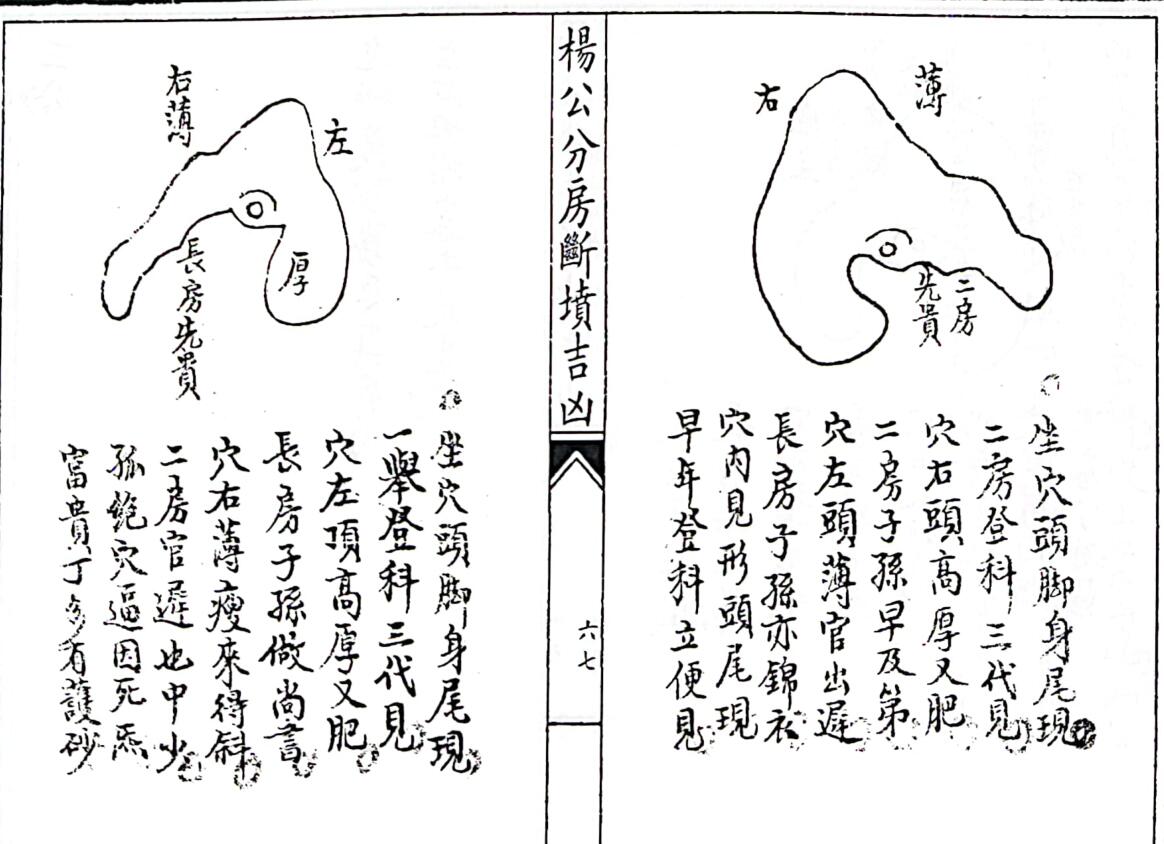 楊公分房斷墳吉凶
六七
薄
右
二房
先貴
坐穴頭脚身尾現
二房登科三代見
穴右頭高厚又肥
二房子孫早及第
穴左頭薄官出遲
長房子孫亦錦衣
穴內見形頭尾現
早年登科立便見
左
右薄
厚
長房先貴
坐穴頭脚身尾現
一舉登科三代見
穴左項高厚又肥
長房子孫做尚書
穴右薄瘦來得斜
二房官遲也中少
孤飽穴逼因死炁
富貴丁多有護砂